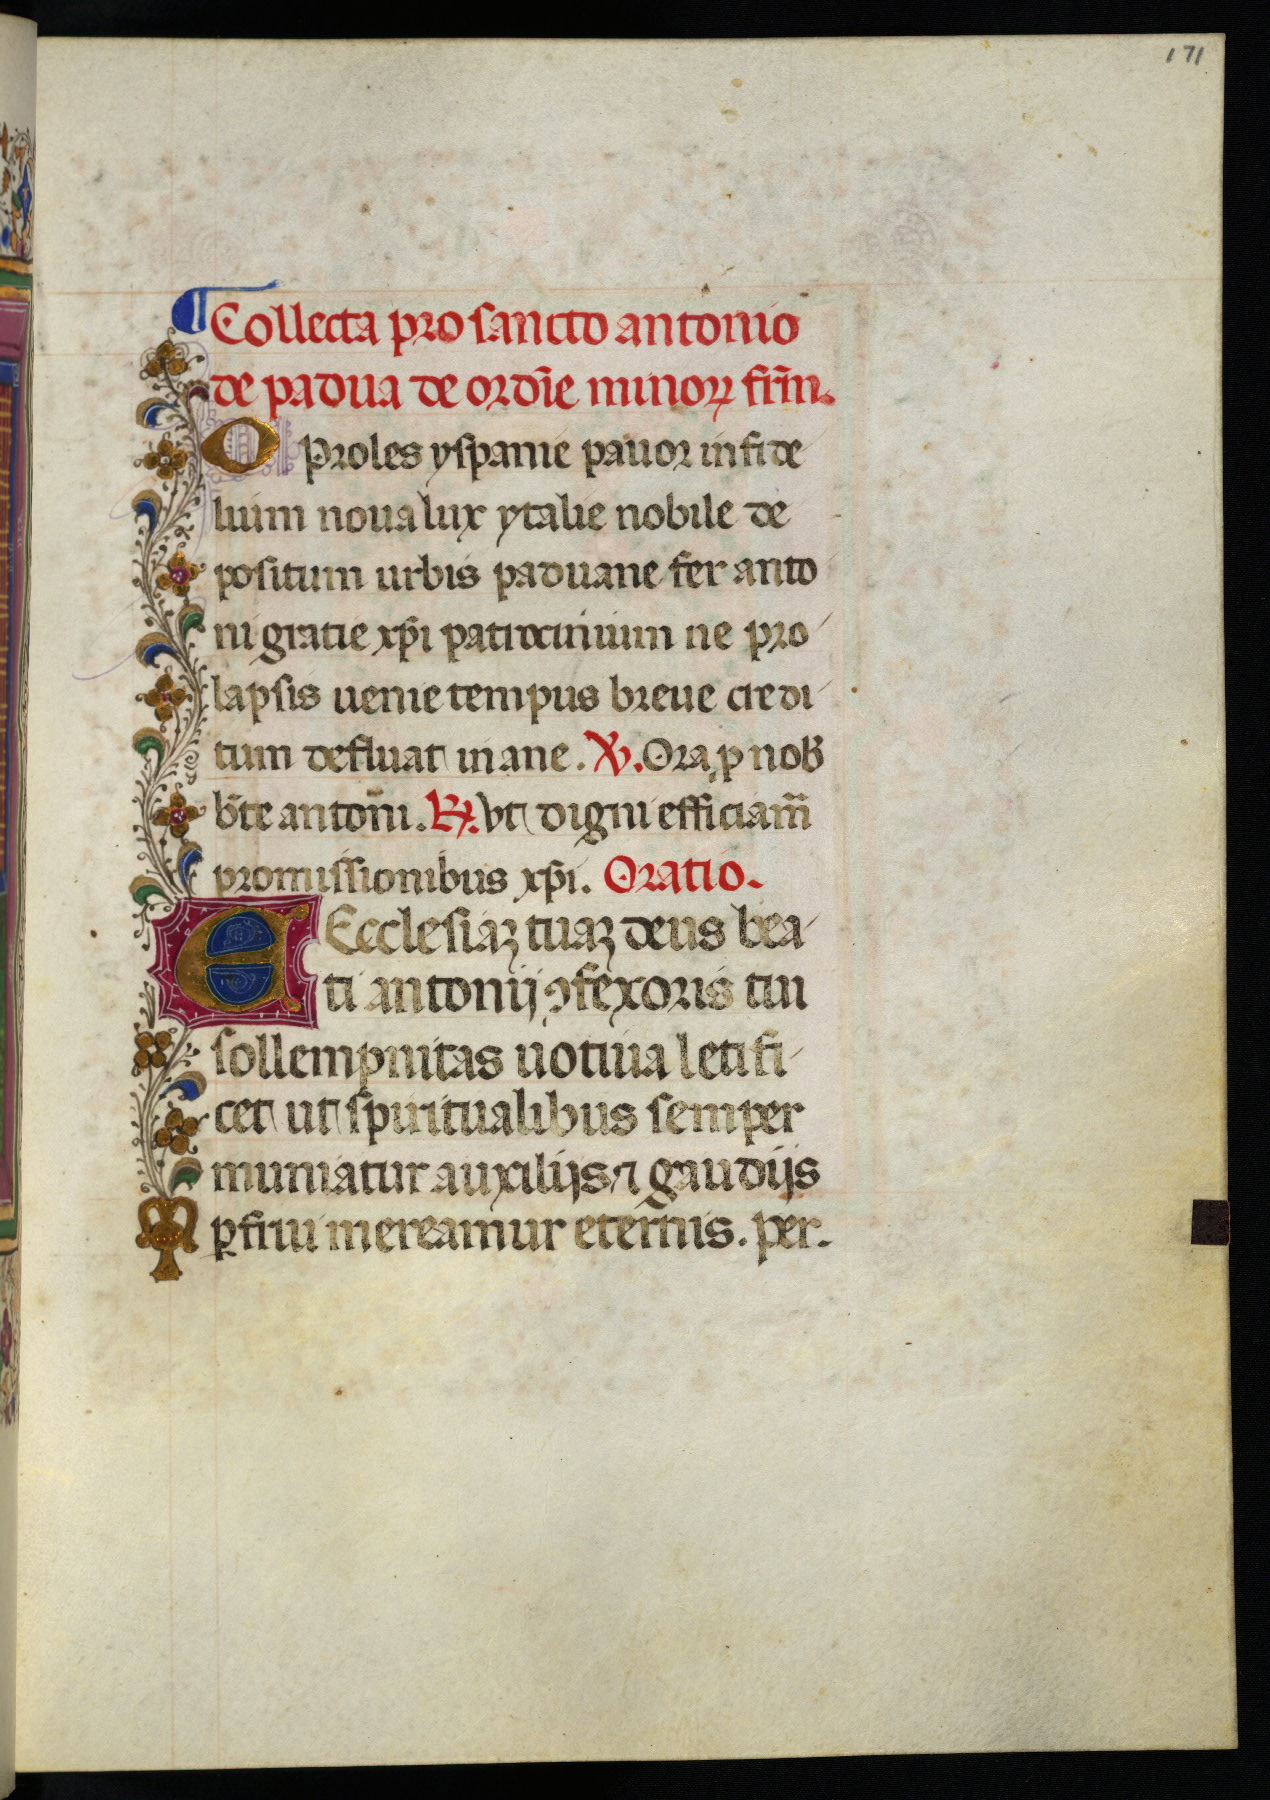 171
¶Collecta pro sancto antonio
de padua de ordīe minoꝝ fr̄m.
O Proles yspanie pauor infide
lium noua lux ytalie nobile de
positum urbis paduane fer anto
ni gratie xp̄i patrocinium ne pro
lapsis uenie tempus breue credi
tum defluat inane. ℣. Ora ꝓ nob̄
b̄te antoni. ℟. vt digni efficiam̄
promissionibus xp̄i. Oratio.
EEcclesiaꝫ tuaꝫ deus bea
ti antonij ꝯfexoris tui
sollempnitas uotiua letifi
cet ut spiritualibus semper
muniatur auxilijs ⁊ gaudijs
ꝑfrui mereamur eternis. per.